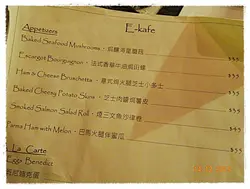 E-kafe
Appetizers
Baked Seafood Mushrooms · 焗釀海皇蘑菇 $55
Escargot Bourguignon · 法式香草汁焗田螺 $55
Ham & Cheese Bruschetta · 意式焗火腿芝士小多士 $35
Baked Cheesy Potato Skins · 芝士肉醬焗薯皮 $55
Smoked Salmon Salad Roll · 煙三文魚沙律卷 $55
Parma Ham with Melon · 巴馬火腿伴蜜瓜 $55
A La Carte
Eggs Benedict